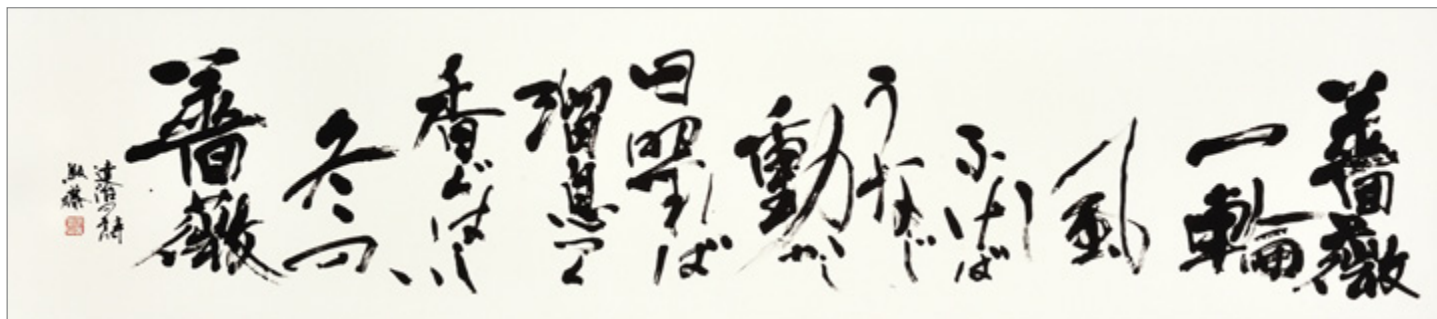 薔薇
一輪
風
ふけば
うなじ
動かし
日照れば
溜息す
香ぐはしい
冬の
薔薇
達治の詩